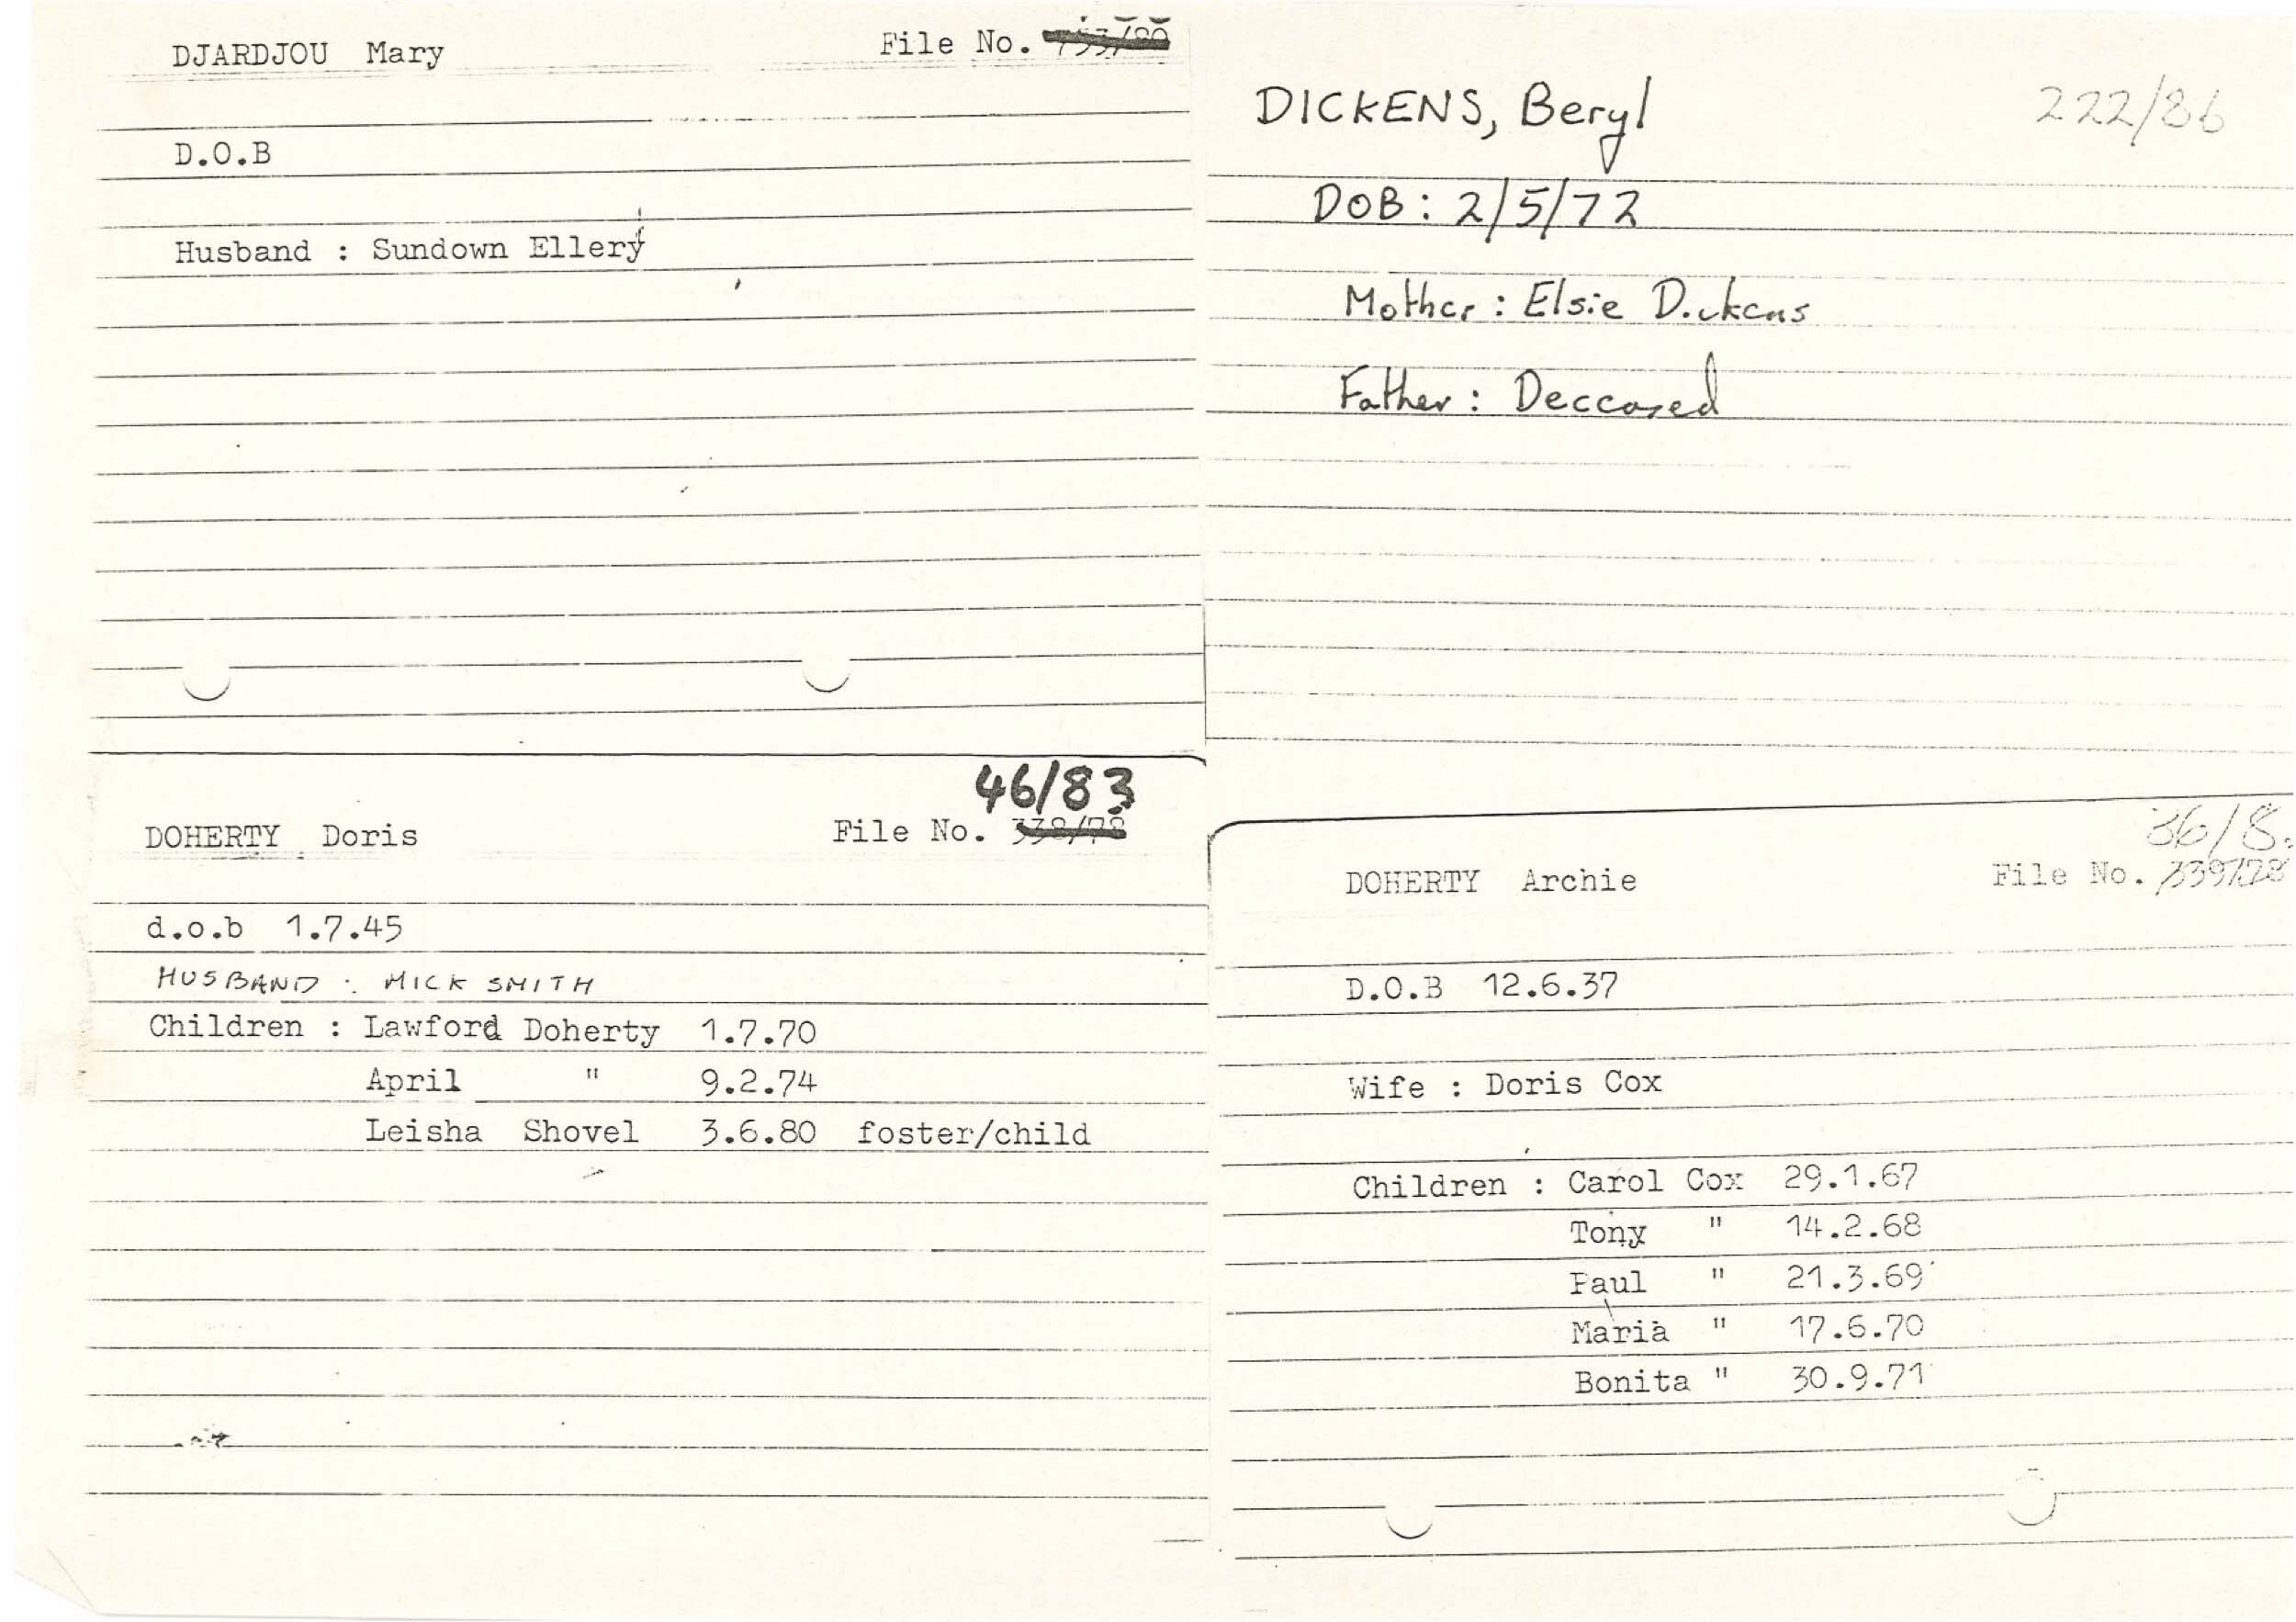 DJARDJOU Mary File No.
D.O.B
Husband : Sundown Ellery
DICKENS, Beryl 222/86
DOB: 2/5/72
Mother: Elsie Dickens
Father: Deceased
46/83
DOHERTY Doris File No. 338/78
d.o.b 1.7.45
HUSBAND : MICK SMITH
Children : Lawford Doherty 1.7.70
April " 9.2.74
Leisha Shovel 3.6.80 foster/child
36/8
DOHERTY Archie File No.
D.O.B 12.6.37
Wife : Doris Cox
Children : Carol Cox 29.1.67
Tony " 14.2.68
Paul " 21.3.69
Maria " 17.6.70
Bonita " 30.9.71